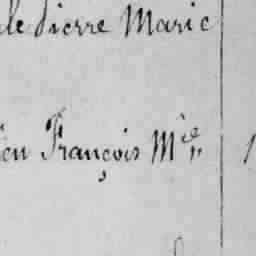 de Pierre Marie
ien François Mie